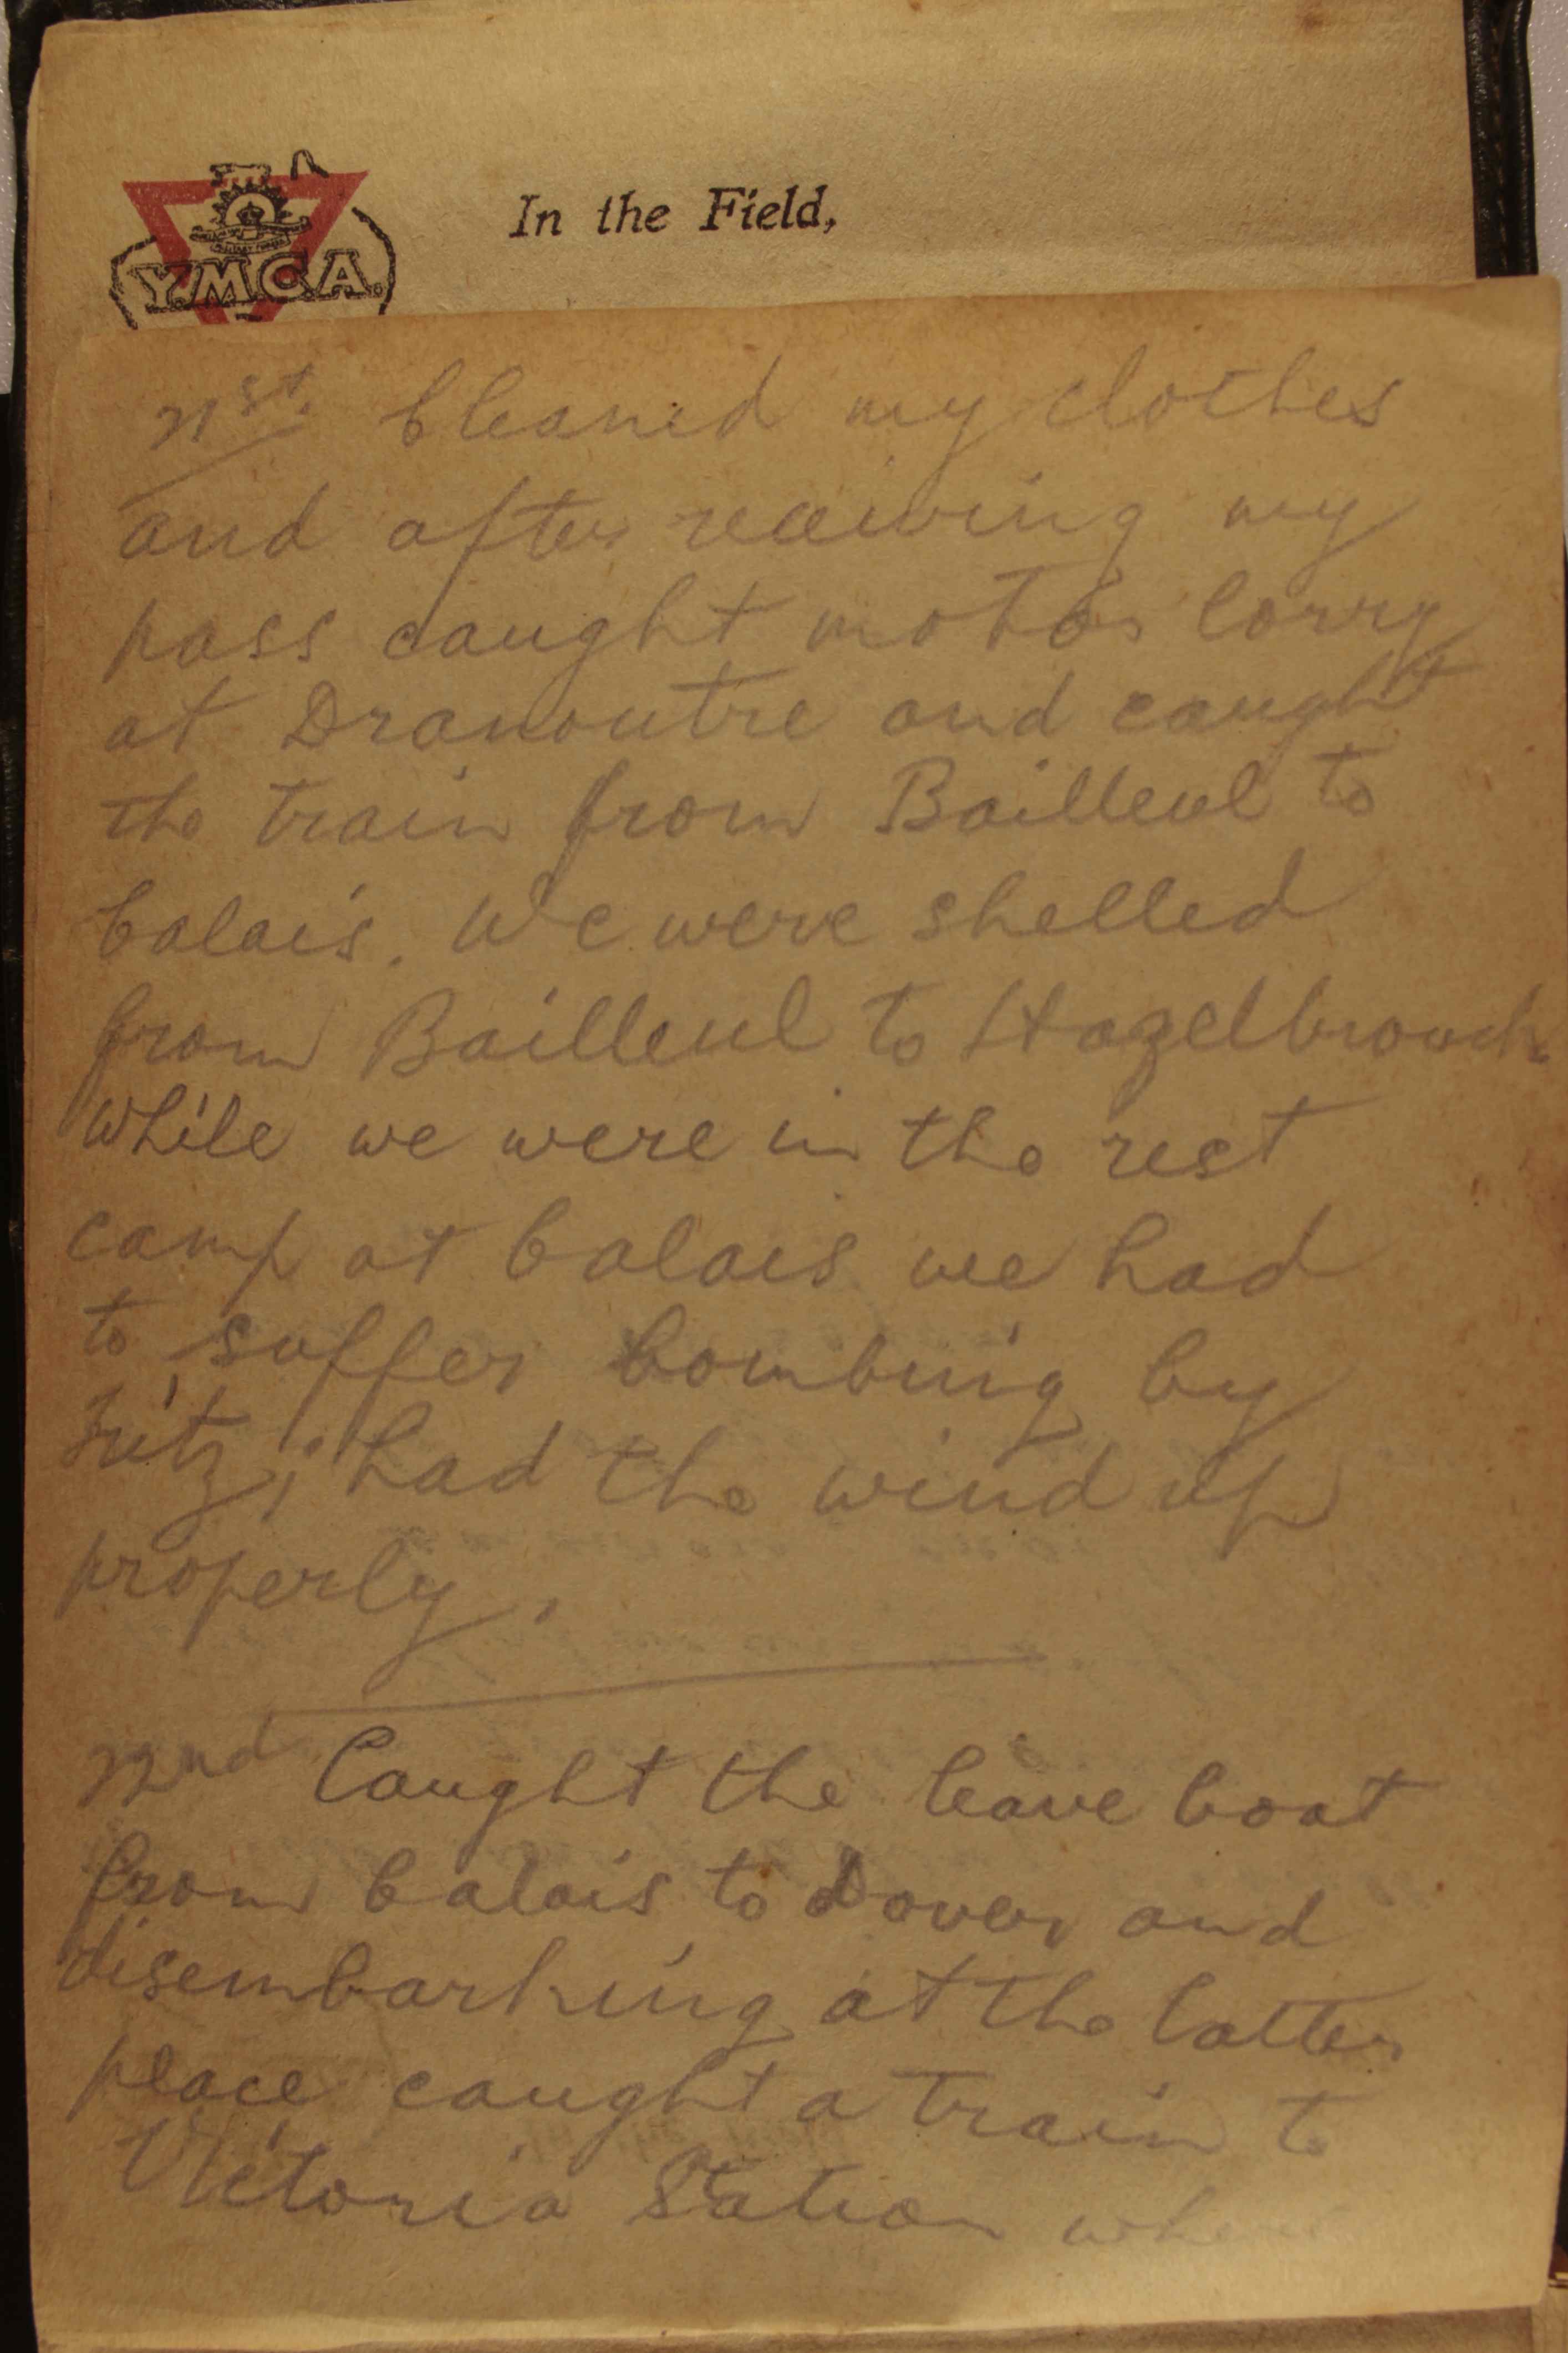 In the Field,
Y.M.C.A.
21st. Cleaned my clothes
and after receiving my
pass caught motor lorry
at Dranoutre and caught
the train from Bailleul to
Calais. We were shelled
from Bailleul to Hazelbrouck.
While we were in the rest
camp at Calais we had
to suffer bombing by
Fritz; had the wind up
properly.
22nd Caught the leave boat
from Calais to Dover and
disembarking at the latter
place caught a train to
Victoria Station where